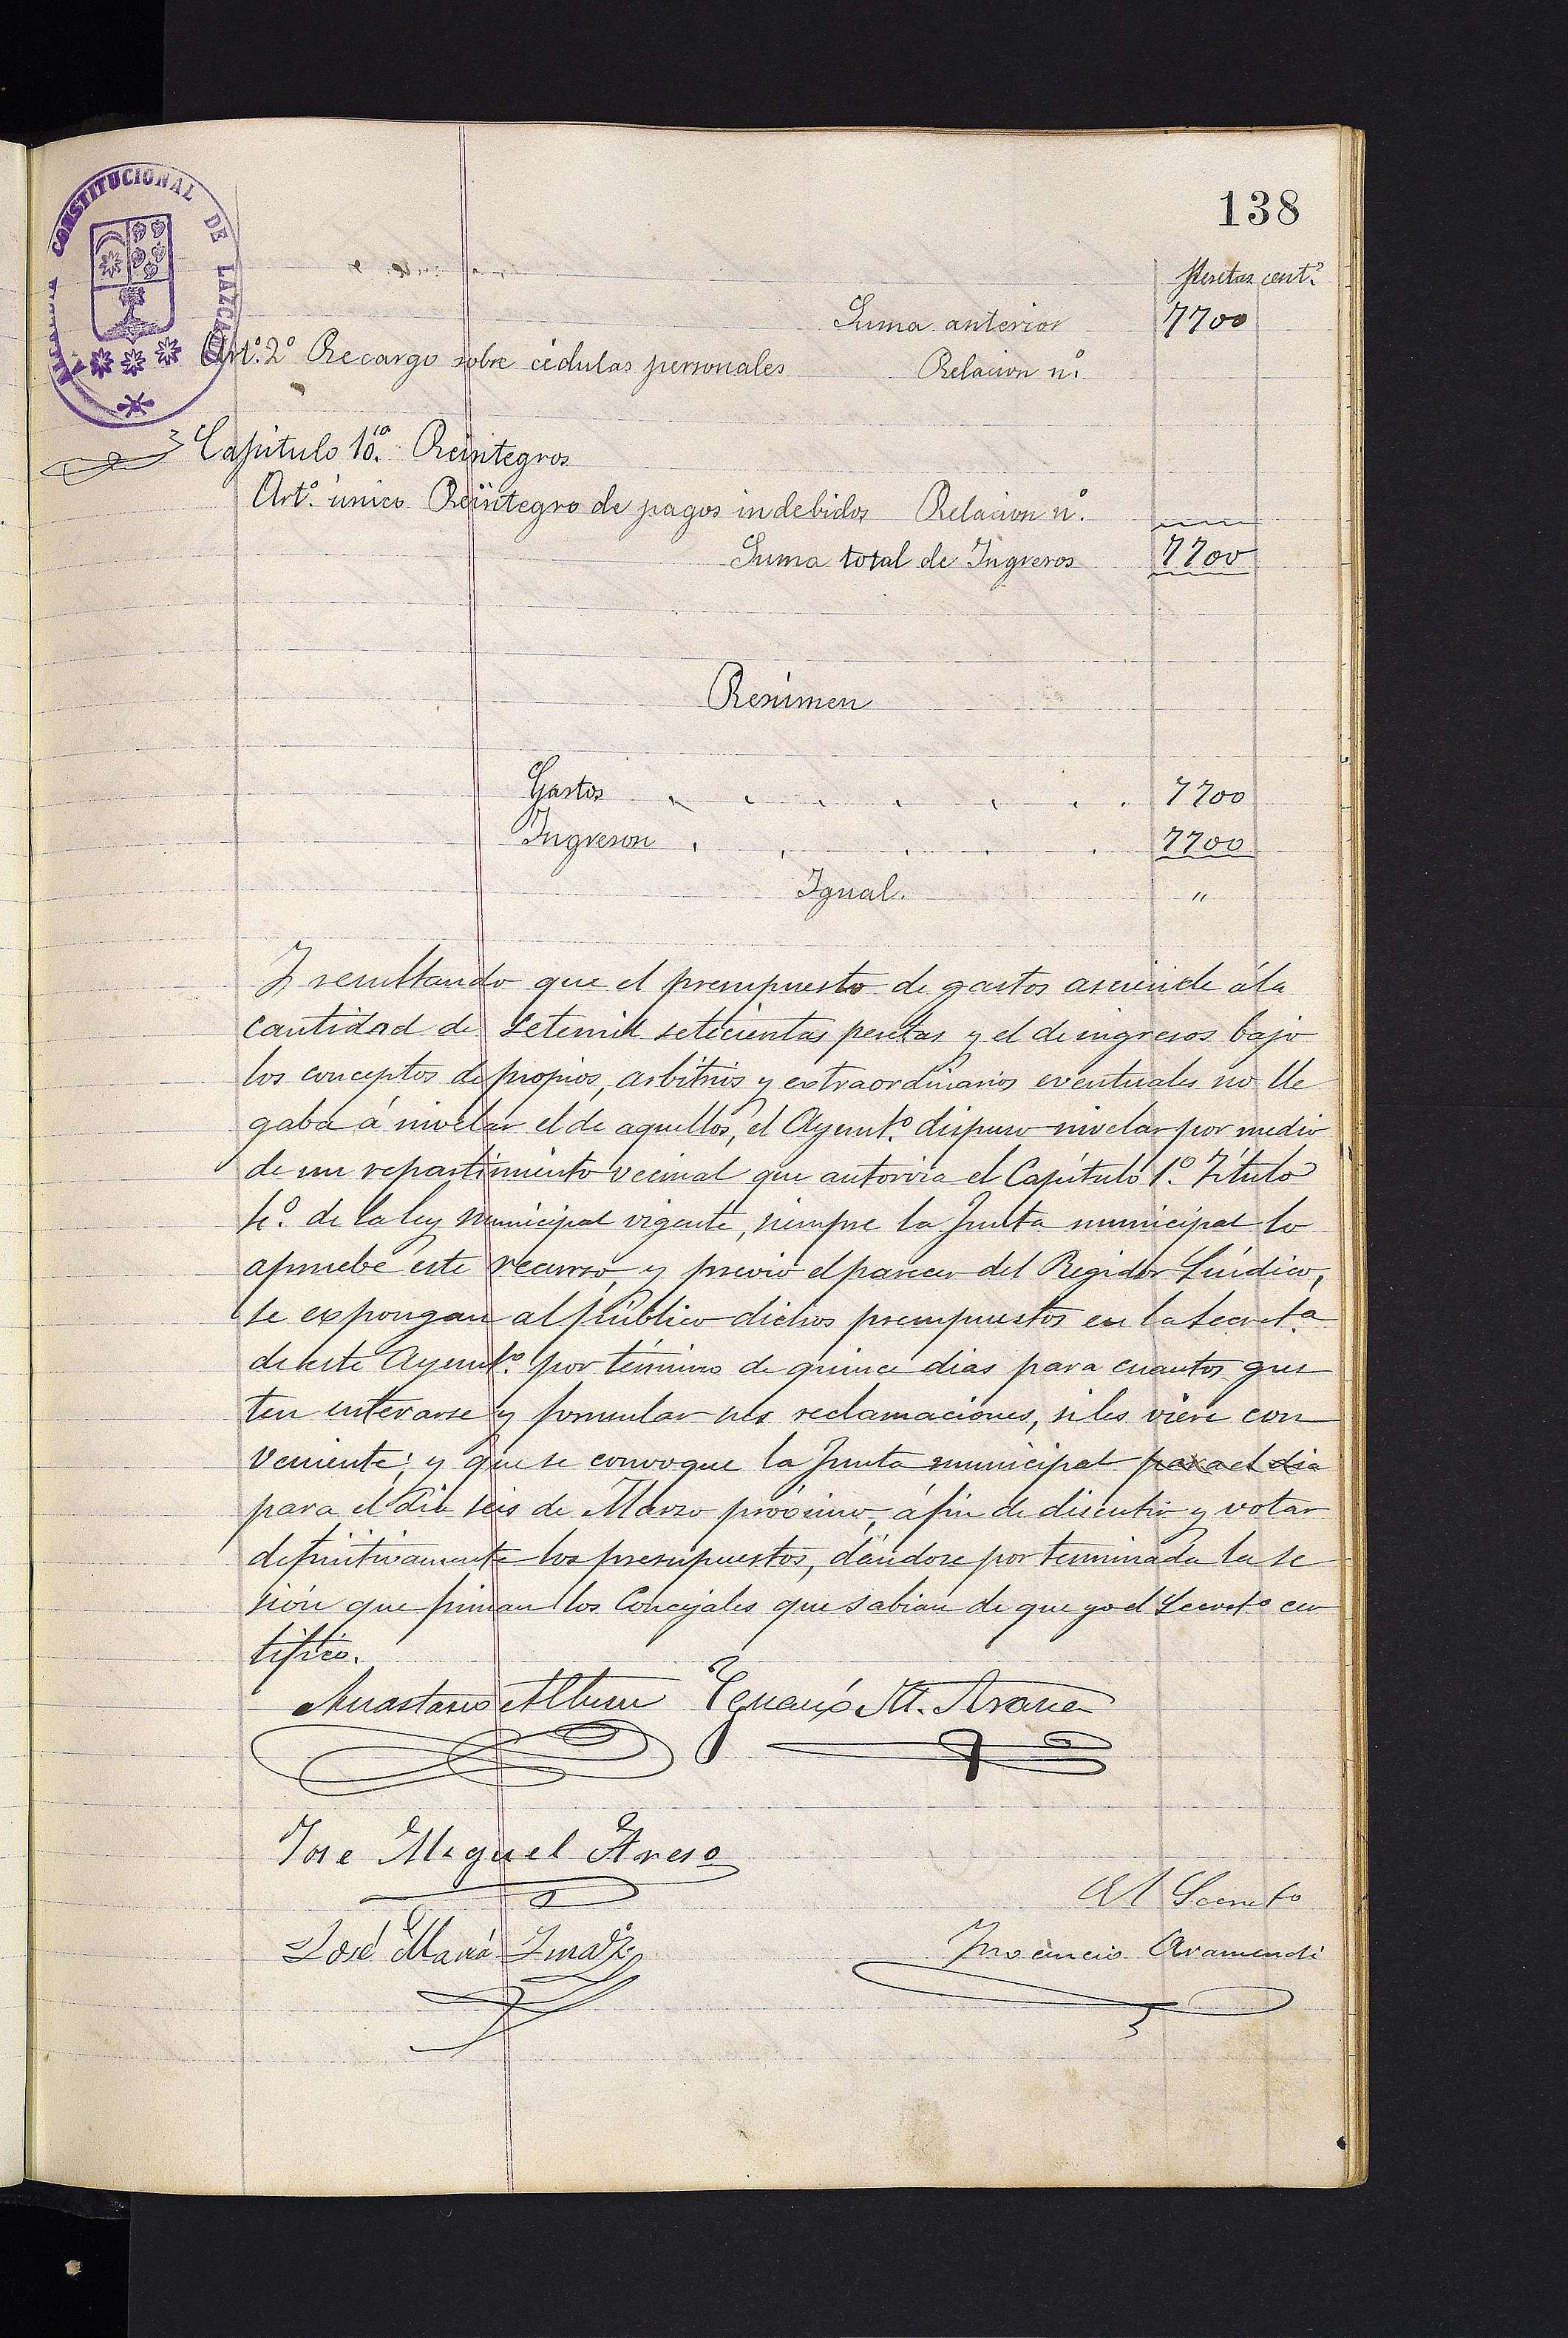 138
ALCALDIA CONSTITUCIONAL DE LAZCANO
Pesetas cent.s
Suma anterior 7700
Art.o 2o Recargo sobre cédulas personales Relacion n.o
Capítulo 10.o Reintegros
Art.o único Reintegro de pagos indebidos Relacion n.o
Suma total de Ingresos 7700
Resúmen
Gastos 7700
Ingresos 7700
Igual. "
Y resultando que el presupuesto de gastos asciende á la
cantidad de setemil setecientas pesetas y el de ingresos bajo
los conceptos de propios, arbitrios y extraordinarios eventuales no lle
gaba á nivelar el de aquellos, el Ayunt.o dispuso nivelar por medio
de un repartimiento vecinal que autoriza el Capítulo 1.o Título
4.o de la ley municipal vigente, siempre la Junta municipal lo
apruebe este recurso, y previo el parecer del Regidor Síndico,
se expongan al público dichos presupuestos en la Secret.a
de este Ayunt.o por término de quince dias para cuantos gus
ten enterarse y formular sus reclamaciones, si les viere con
veniente; y que se convoque la Junta municipal para el dia
para el dia seis de Marzo próximo, á fin de discutir y votar
definitivamente los presupuestos, dándose por terminada la se
sión que firman los Concejales que sabian de que yo el Secret.o cer
tifico.
Anastasio Genaro M. Arana
Jose Miguel Areso
El Secret.o
José María Imaz Inocencio Aramendi